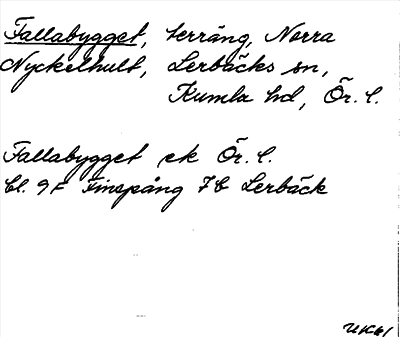 Fallabygget, terräng, Norra
Nyckelhult, Lerbäcks sn,
Kumla hd, Ör. l.
Fallabygget ek Ör. l.
bl. 9F Finspång 7b Lerbäck